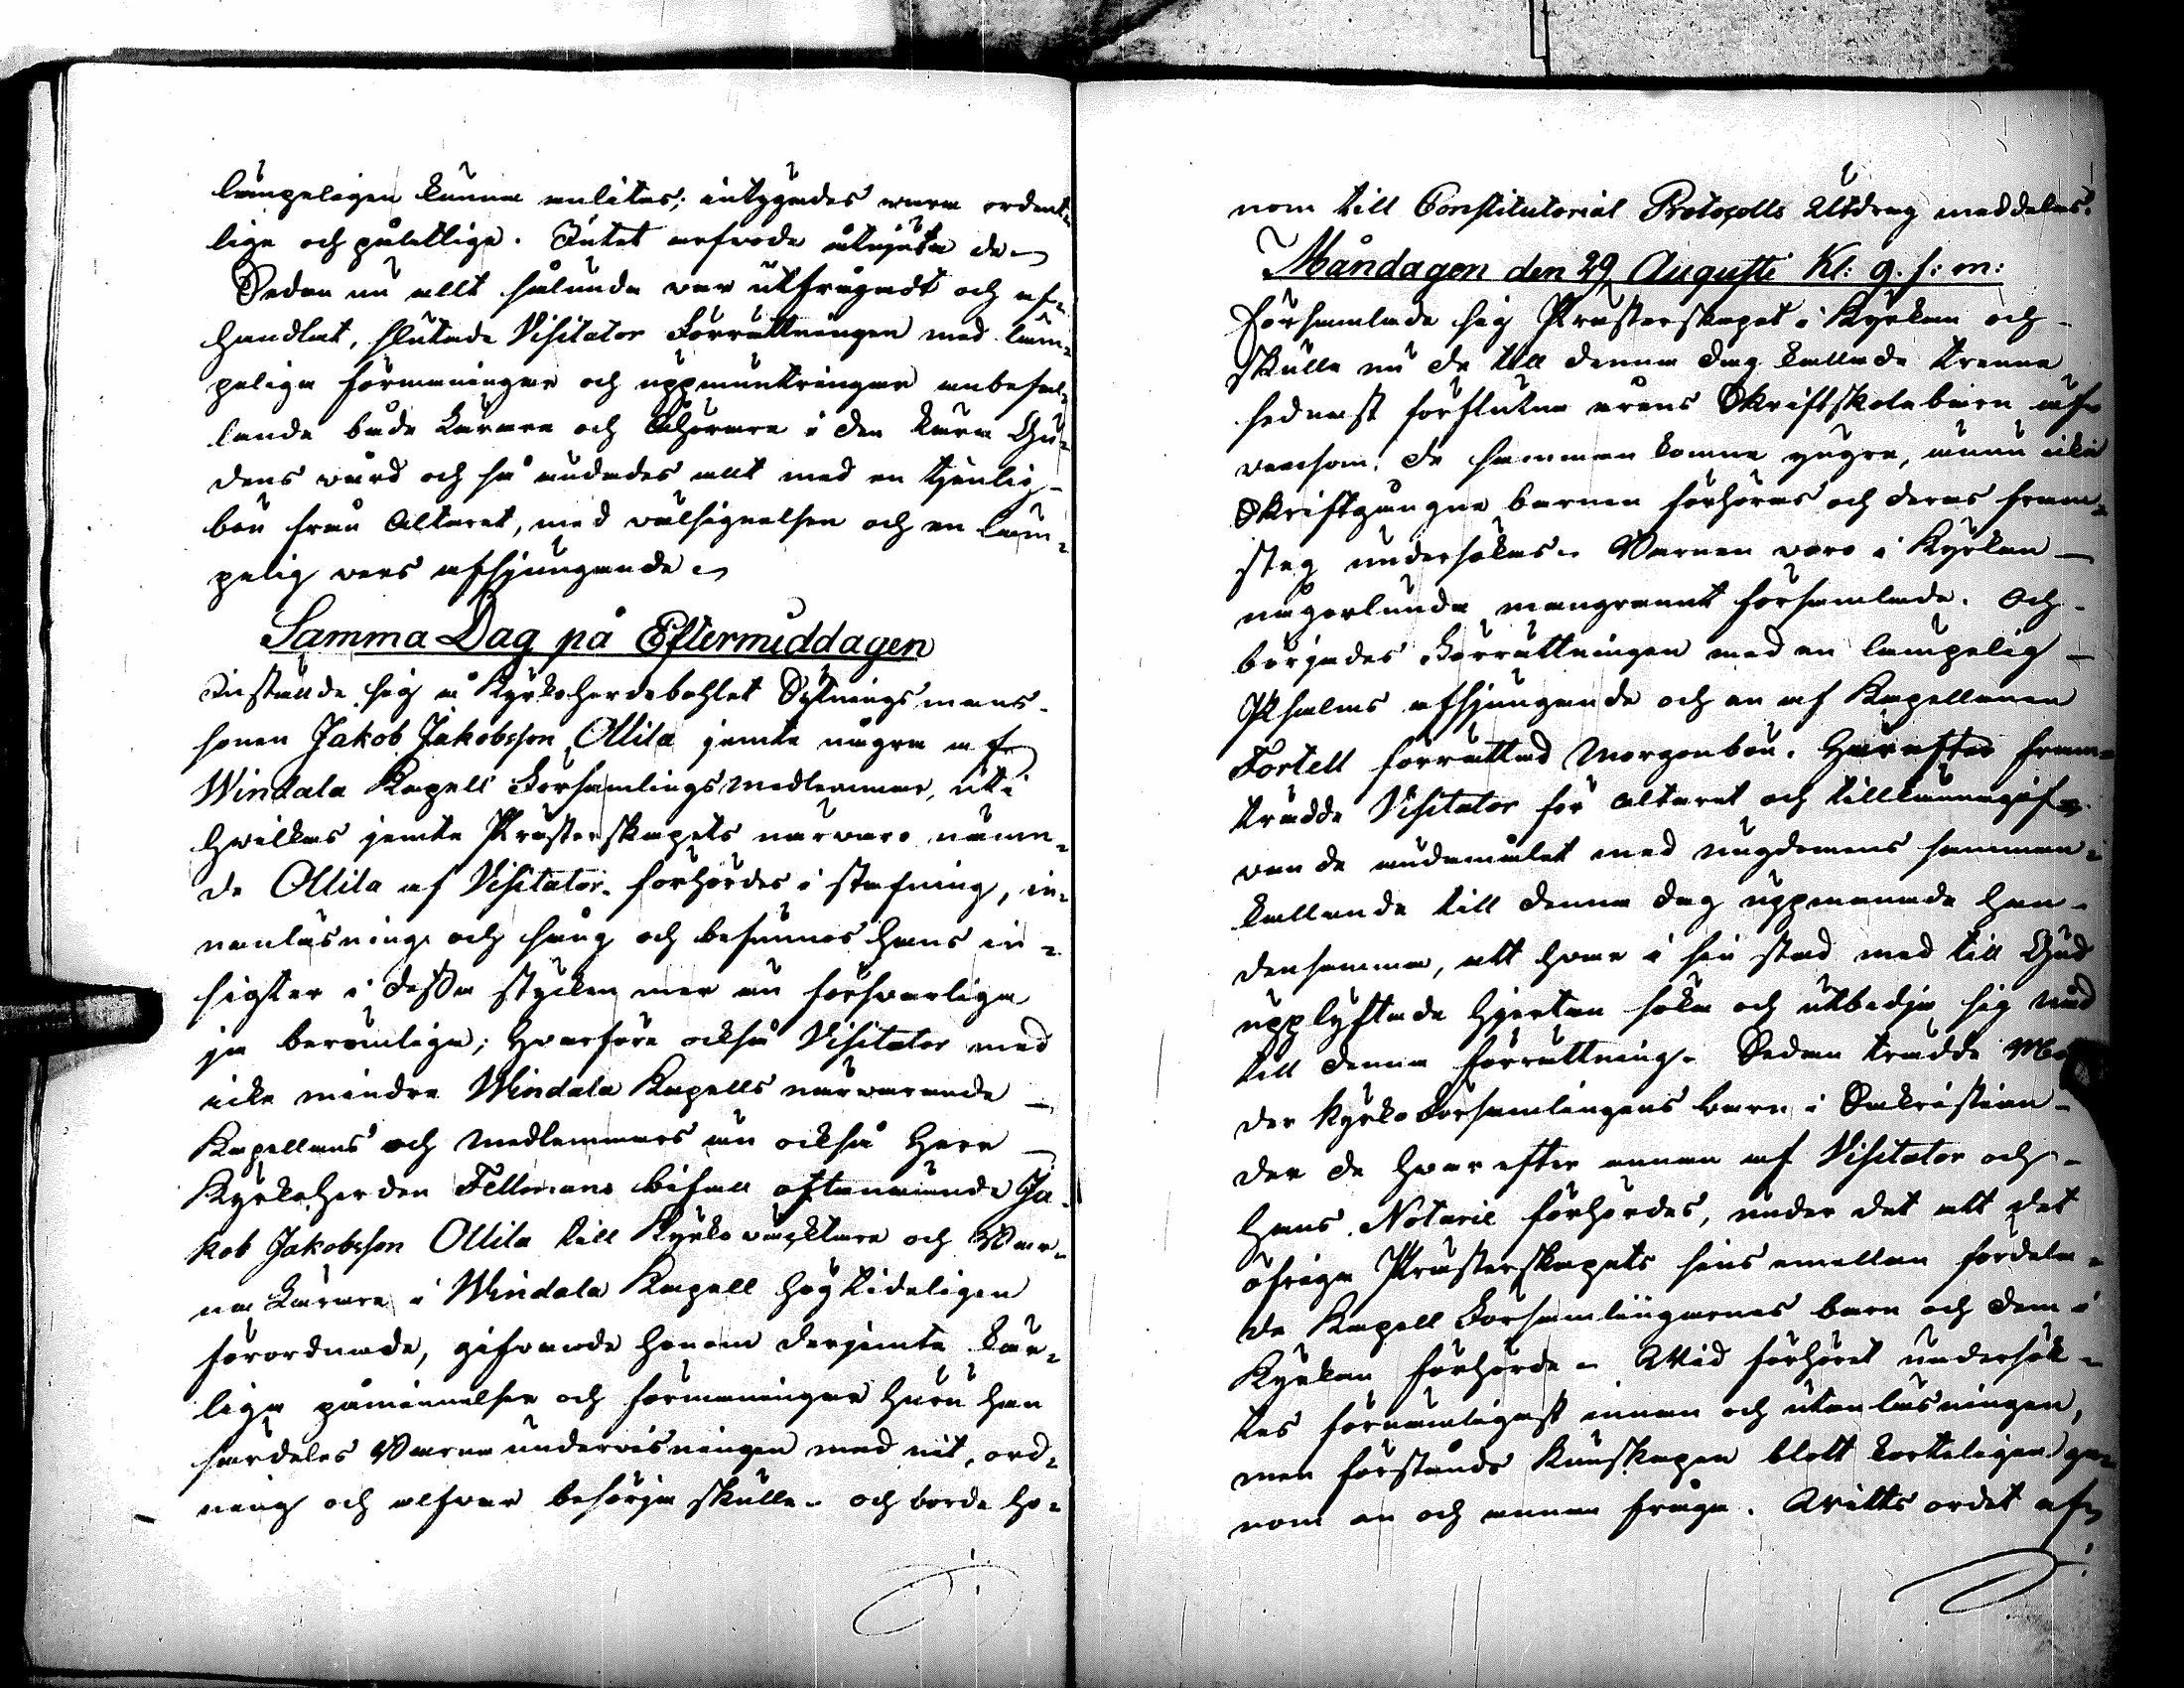 lämpeligen kunna anlitas; intygades vara ordent¬
lige och pålitlige. Intet arfvode åtnjuta de
Sedan nu allt sålunda var utfrågadt och af¬
handlat, slutade Visitator Förrättningen med läm¬
pelige förmaningar och uppmuntringar anbefal¬
lande både Lärare och Åhörare i den kära Gu¬
dens vård och så ändades allt med en tjenlig
bön från Altaret, med välsignelsen och en läm¬
pelig vers afsjungande.
Samma Dag på Eftermiddagen
Inställde sig å Kyrkoherdebohlet Sytningsmans¬
sonen Jakob Jakobsson Ollila jemte några af
Windala Kapell Församlingsmedlemmar, uti
hvilkas jemte Prästerskapets närvaro nämn¬
de Ollila af Visitator förhördes i stafning, in¬
nanläsning och sång och befunnos hans in¬
sigter i dessa stycken mer än försvarliga
ja berömliga; hvarföre också Visitator med
icke mindre Windala Kapells närvarande
Kapellans och medlemmars än också Herr
Kyrkoherden Fellmans bifall oftanämnde Ja¬
kob Jakobsson Ollila till Kyrkoväktare och Bar¬
na Lärare i Windala Kapell högtideligen
förordnade, gifvande honom derjemte kär¬
liga påminnelser och förmaningar huru han
särdeles Barnaundervisningen med nit, ord¬
ning och alfvar besörja skulle. och borde ho¬
nom till Constitutorial Protocolls Utdrag meddelas.
Måndagen den 29 Augusti Kl: 9. f: m:
Församlade sig Prästerskapet i Kyrkan och
skulle nu de till denna dag kallade trenne
sednast förflutna årens Skriftskolebarn äfe
vensom de sammankomne yngre, ännu icke
Skriftgångna barnen förhöras och deras fram¬
steg undersökas. Barnen voro i Kyrkan
någorlunda mangrannt församlade. Och
börjades Förrättningen med en lämpelig
Psalms afsjungande och en af Kapellanen
Fortell förrättad Morgonbön. Härefter fram¬
trädde Visitator för Altaret och tillkännagif¬
vande ändamålet med ungdomens samman¬
kallande till denna dag uppmanade han
densamma, att hvar i sin stad med till Gud
upplyftade hjertan söka och utbedja sig nåd
till denna förrättning. Sedan trädde Mo
der Kyrko Församlingens barn i Sakristian
der de hvar efter annan af Visitator och
Hans Notarie förhördes, under det att det
öfriga Prästerskapets sins emellan fördela¬
de Kapell Församlingarnes barn och dem i
Kyrkan förhörde. Vid förhöret undersök¬
tes förnämligast innan och utanläsningen,
men förstånds kunskapen blott korteligen ge¬
nom en och annan fråga. Vitts ordet af